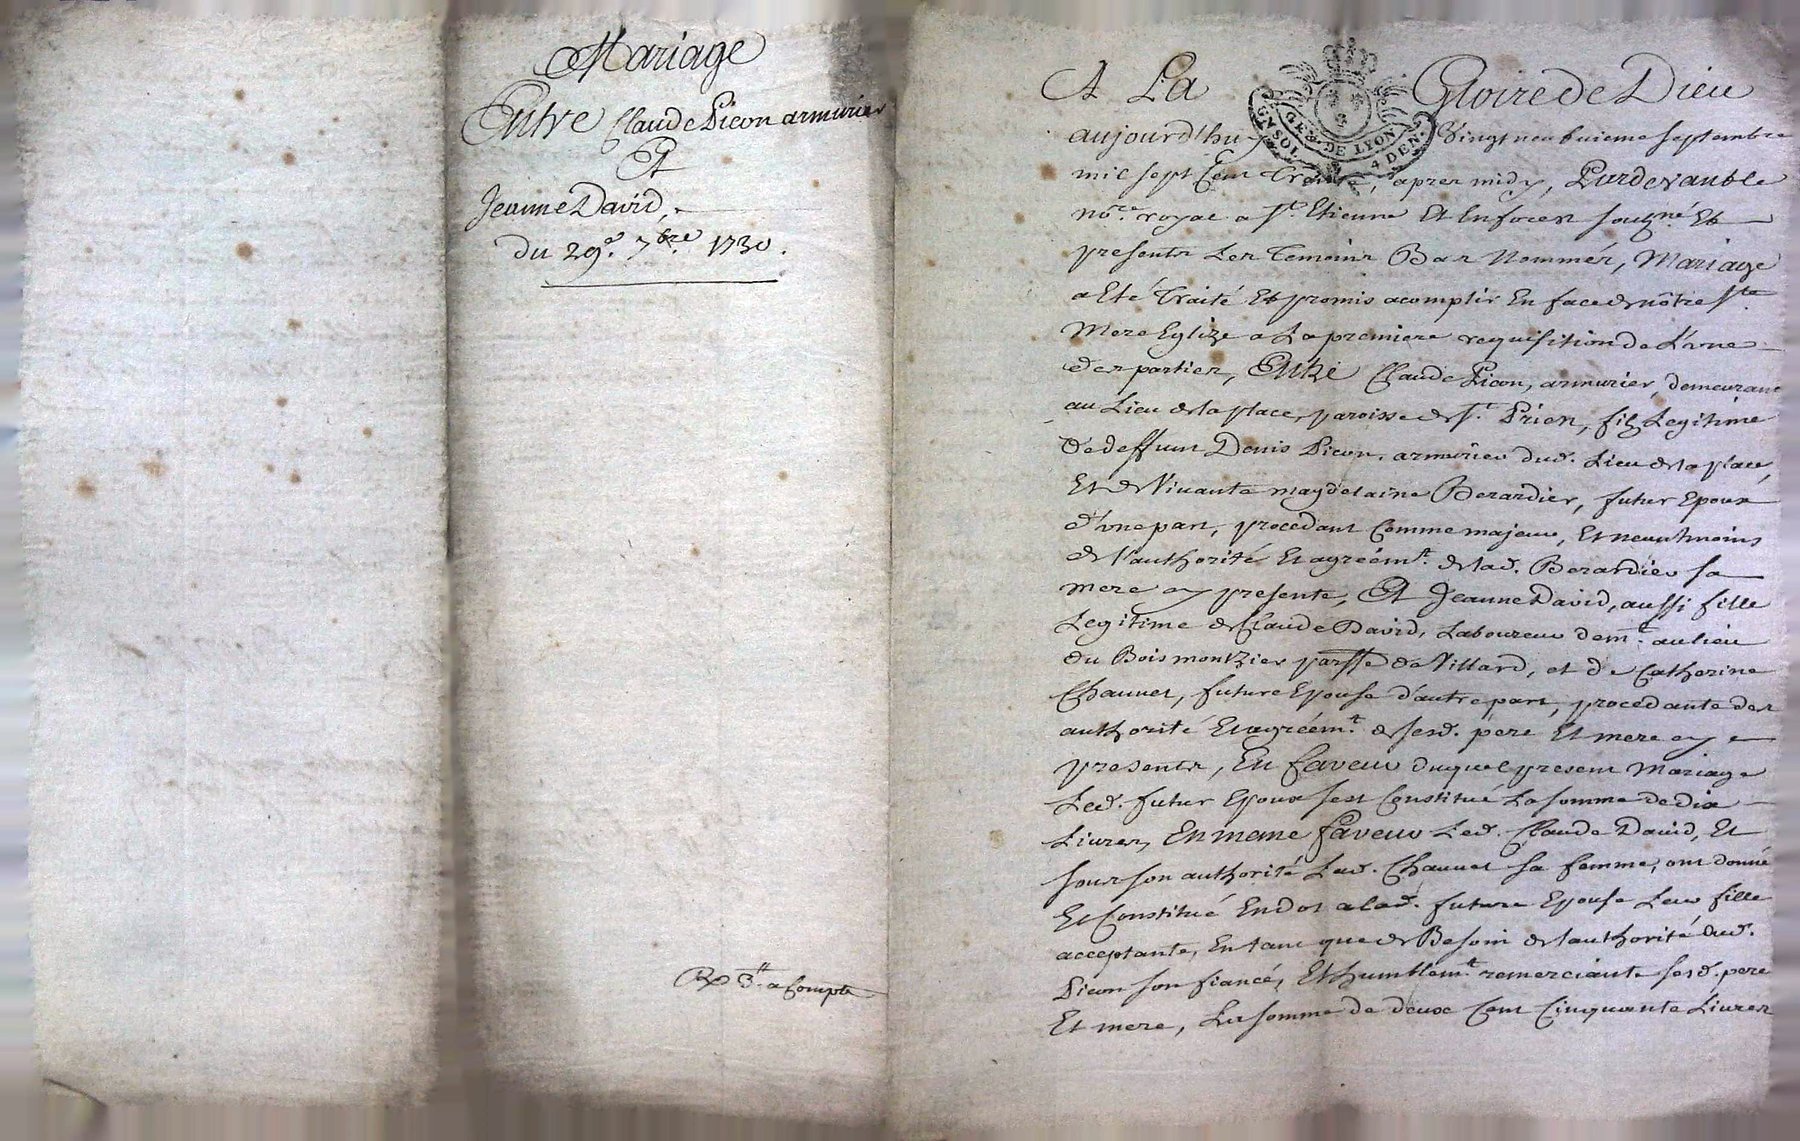 Mariage
Entre Claude Picon armurier
Et
Jeanne David,
du 29e. 7bre. 1730.
Rx 3tt. a Compte
A La Gloire de Dieu
GEN. DE LYON
UN SOL 4 DEN.
aujourd'huy vingt neufuieme septembre
mil sept Cent Trente, apres midy, Pardevant Le
nore. royal a St. Etienne Et En forez sougné. Et
presents Les Temoins Bas Nommés, Mariage
a Eté Traité Et promis acomplir En face de nôtre Ste
Mere Eglize a La premiere requisition de L'une
des parties, Entre Claude Picon, armurier, demeurant
au Lieu de la place, paroisse de St. Priest, filz Legitime
de deffunt Denis Picon, armurier dud. Lieu de la place,
Et de Vivante magdelaine Berardier, futur Epoux
d'une part, procedant Comme majeur, Et neantmoins
de l'authorité Et agréemt. de lad. Berardier sa
mere cy presente, Et Jeanne David, aussi fille
Legitime de Claude David, Laboureur demt. au lieu
du Bois montzier parsse de Villard, et de Catherine
Chauvet, future Epouse d'autre part, procedante des
authorité Et agréemt. de sesd. pere Et mere cy
presents, En faveur duquel present Mariage
Led. futur Epoux s'est Constitué La somme de dix
Livres, En meme faveur Led. Claude David, Et
sous son authorité Lad. Chauvet sa femme, ont donné
Et Constitué En dot a lad. future Epouse Leur fille
acceptante, En tant que de Besoin de l'authorité dud.
Picon son fiancé, Et humblemt. remerciante sesd. pere
Et mere, La somme de deux Cent Cinquante Livres